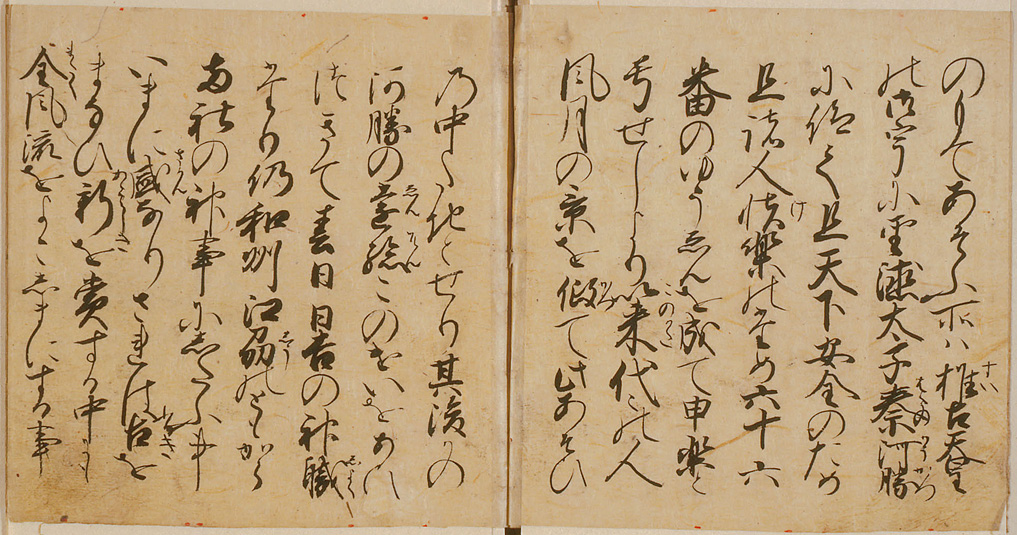 のもてあそふ所ハ推古天皇
の御宇に聖徳太子秦河勝
に仰て且天下安全のため
且諸人快楽のため六十六
番のゆうゑんを成て申楽と
号せしより以来代々の人
風月の景を仮て此あそひ
乃中たちとせり其後かの
河勝の遠孫このけいをあひ
つきて春日日吉の神職
たり仍和州江州のともから
両社の神事にしたかふ事
いまに盛なりされは古を
まなひ新を賞する中にも
全風流をよこしまにする事